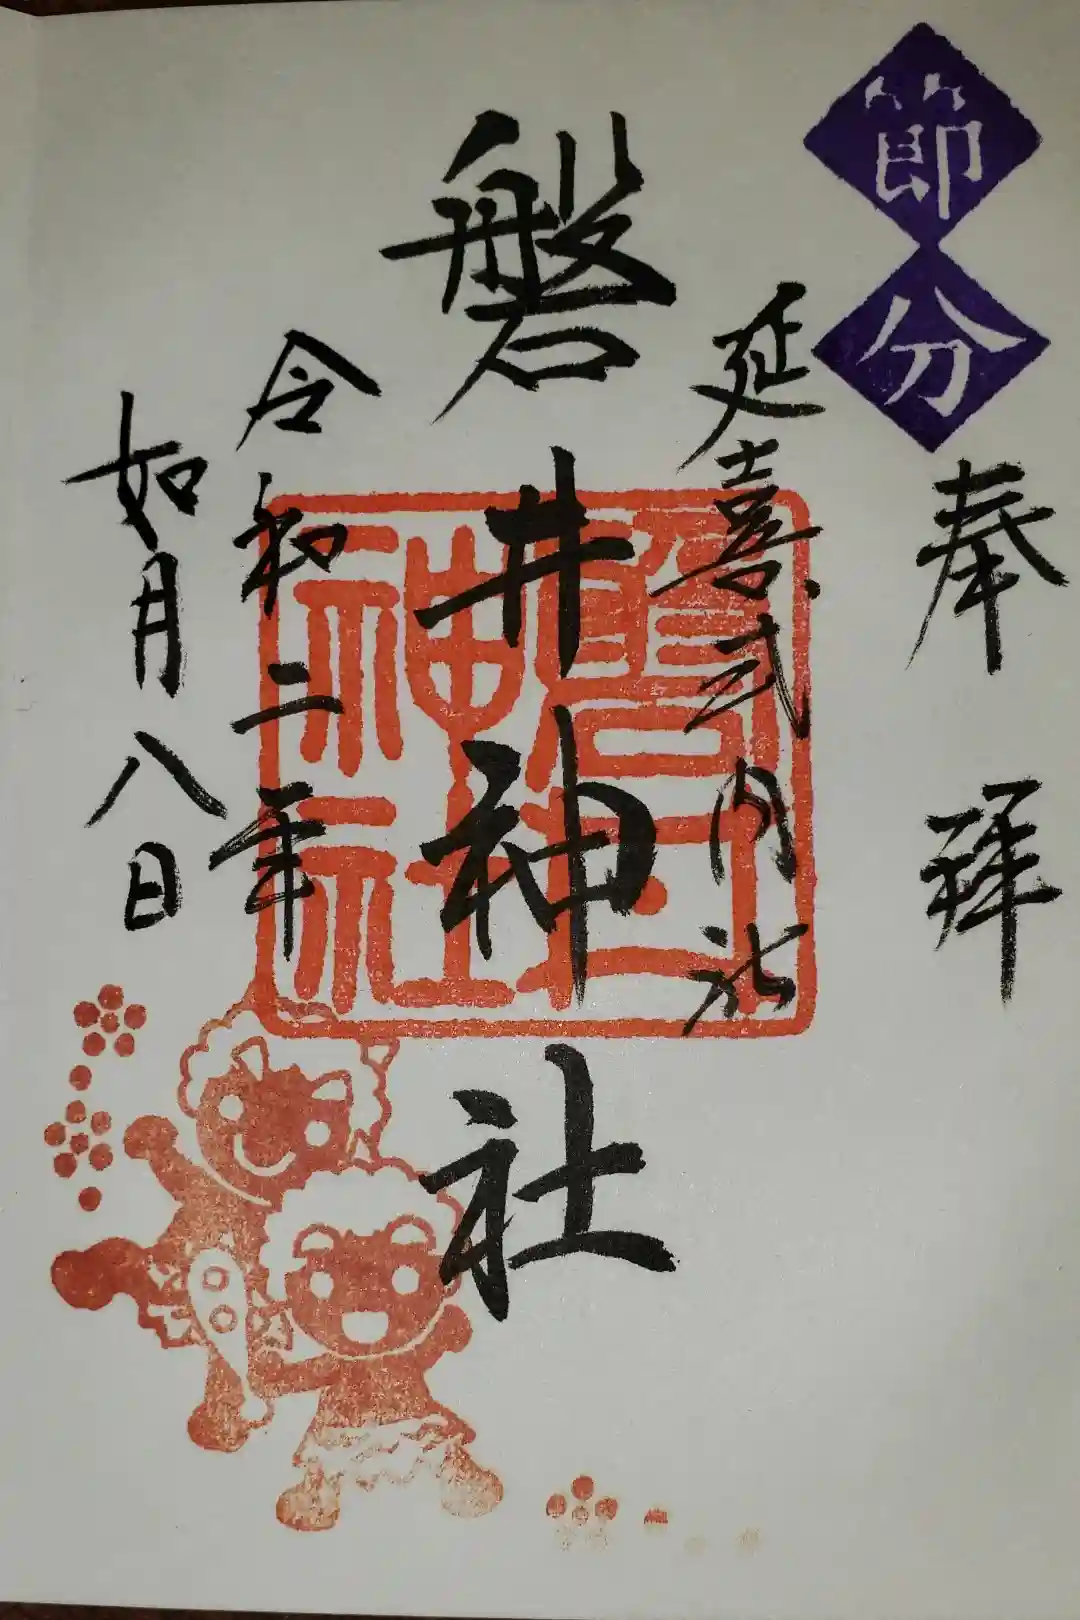 節分
奉拝
延喜式内社
磐井神社
令和二年
如月八日